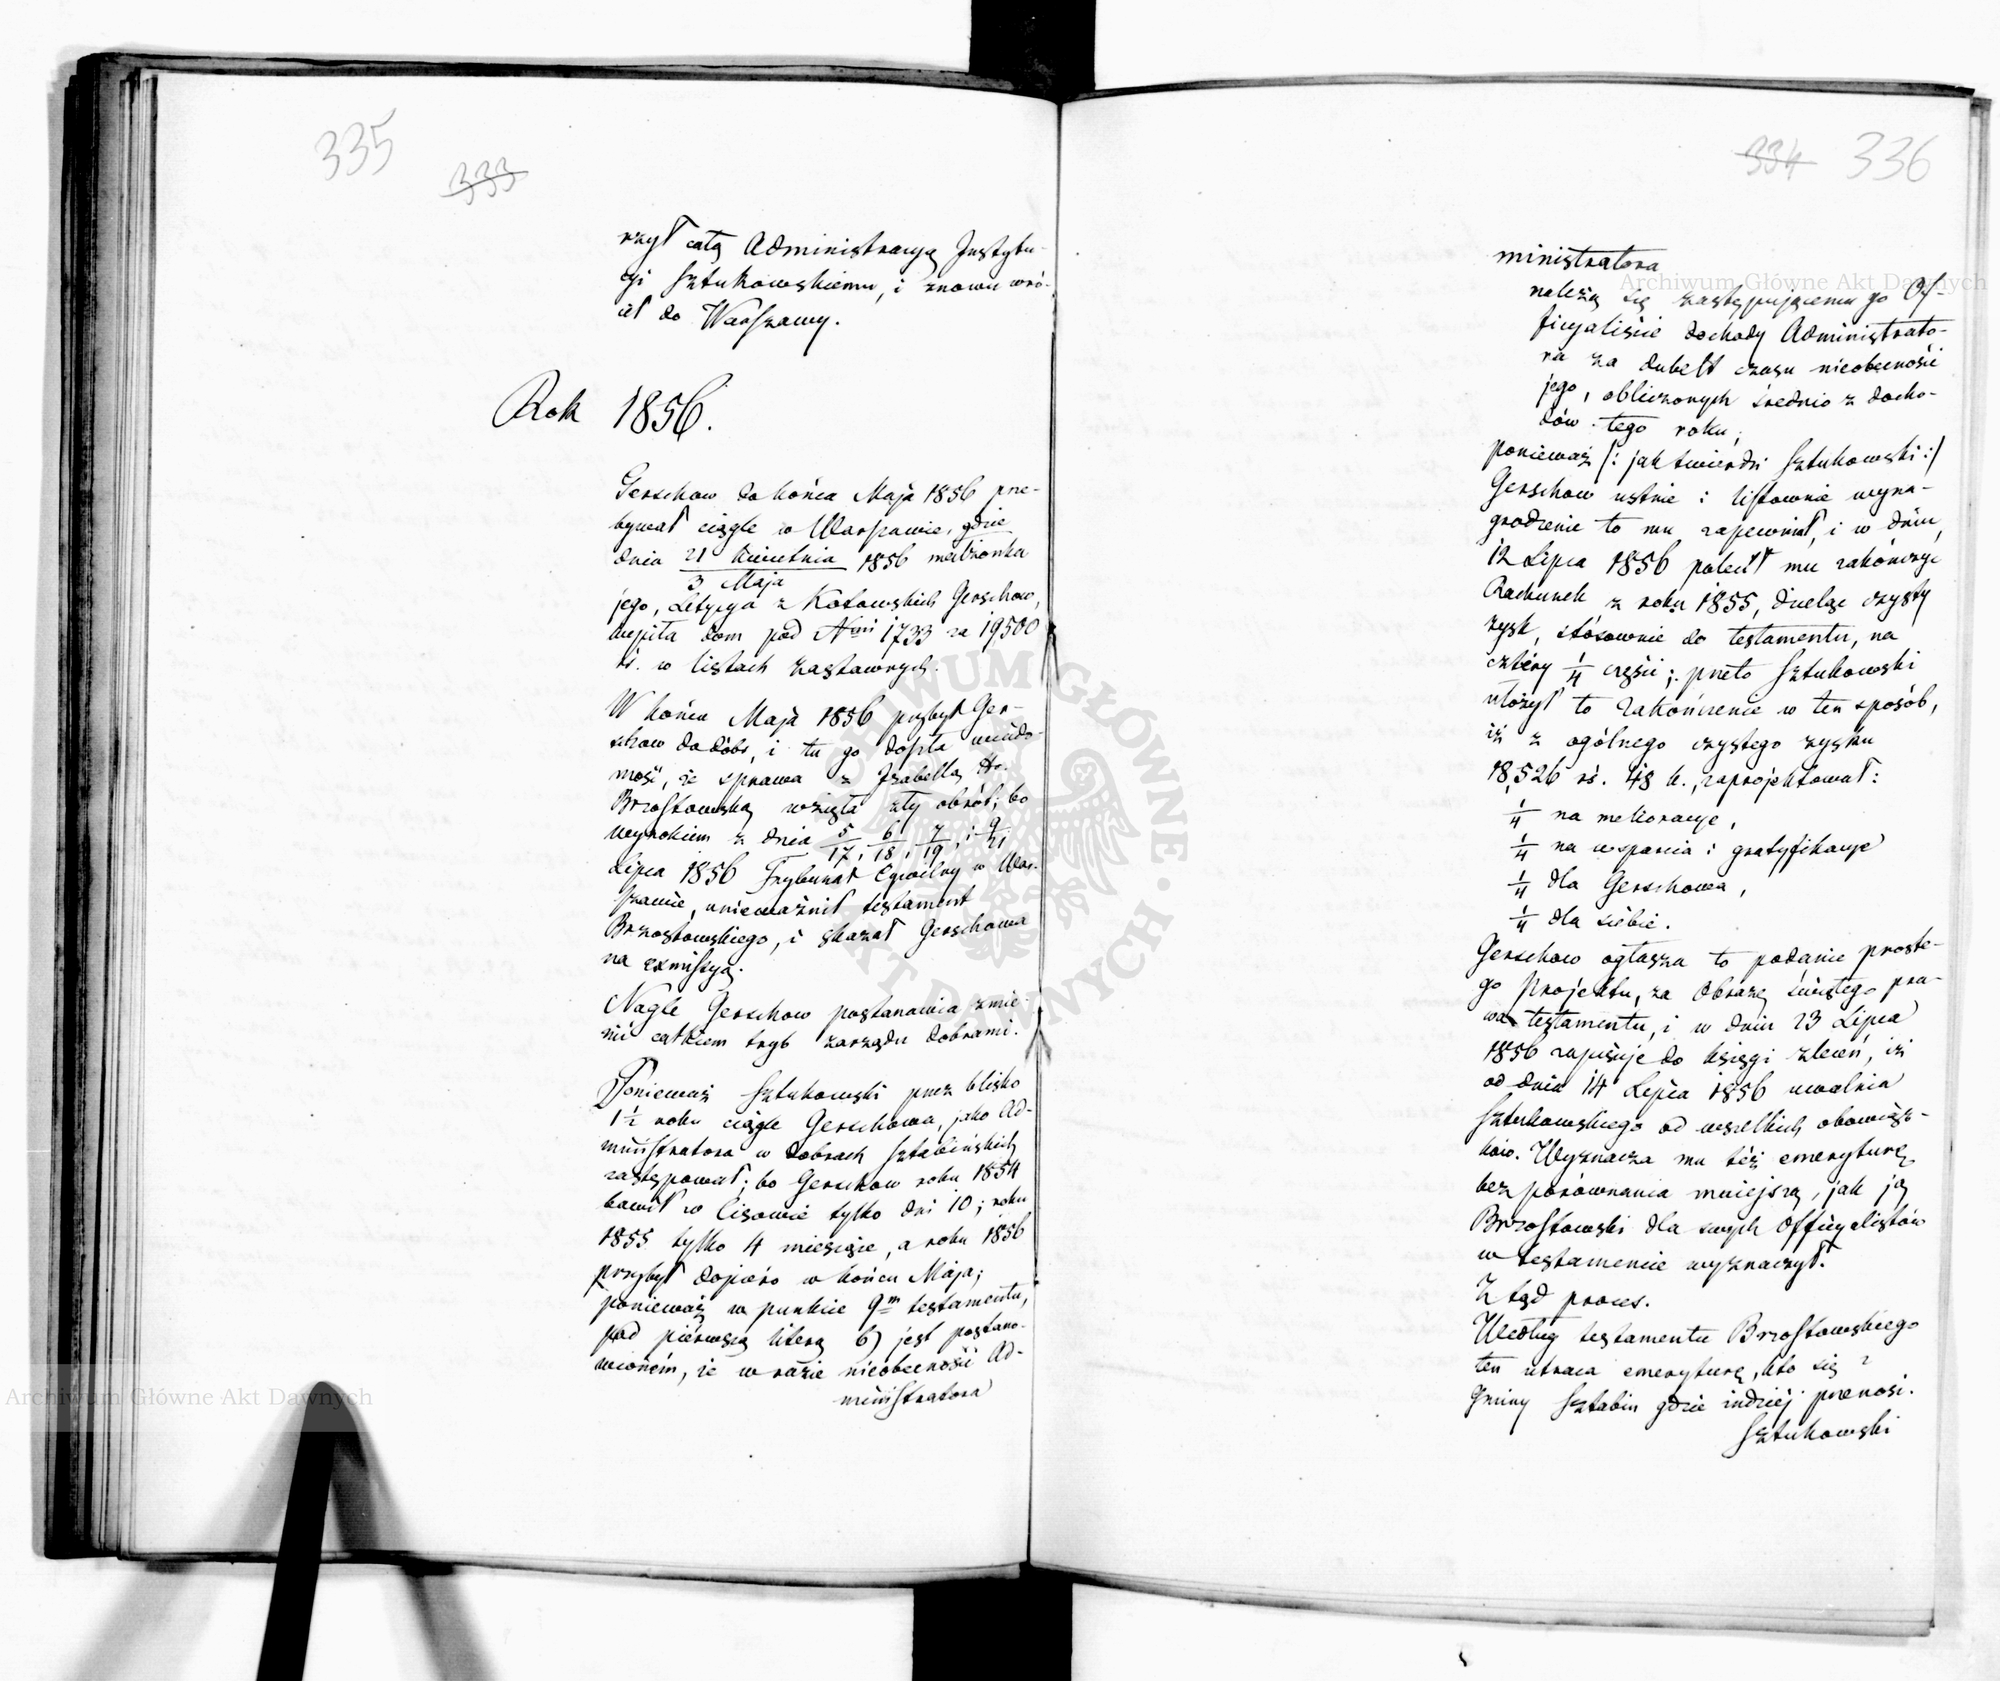 335
333
rzył całą Administracyą Instytu-
cyi Sztukowskiemu, i znowu wró-
cił do Warszawy.
Rok 1856.
Gerschow do końca Maja 1856 prze-
bywał ciągle w Warszawie, gdzie
dnia 21 Kwietnia / 3 Maja 1856 małżonka
jego, Letycya z Kotowskich Gerschow,
kupiła dom pod Nrm 1733 za 19,500
rś. w listach zastawnych.
W końcu Maja 1856 przybył Ger-
schow do dóbr, i tu go doszła wiado-
mość, że sprawa z Izabellą Hr.
Brzostowską wzięła zły obrót; bo
wyrokiem z dnia 5/17, 6/18, 7/19, i 9/21
Lipca 1856 Trybunał Cywilny w War-
szawie, unieważnił testament
Brzostowskiego, i skazał Gerschowa
na exmissyą.
Nagle Gerschow postanawia zmie-
nić całkiem tryb zarządu dobrami.
Ponieważ Sztukowski przez blisko
1½ roku ciągle Gerschowa, jako Ad-
ministratora w dobrach Sztabińskich
zastępował; bo Gerschow roku 1854
bawił w Cisowie tylko dni 10; roku
1855 tylko 4 miesiące, a roku 1856
przybył dopiero w końcu Maja;
ponieważ w punkcie 9m testamentu,
pod pierwszą literą b) jest postano-
wioném, że w razie nieobecności Ad-
ministratora
334 336
ministratora
należą się zastępującemu go Of-
ficyaliście dochody Administrato-
ra za dubelt czasu nieobecności
jego, obliczonych średnio z docho-
dów tego roku;
ponieważ /: jak twierdzi Sztukowski :/
Gerschow ustnie i listownie wyna-
grodzenie to mu zapewniał, i w dniu
12 Lipca 1856 polecił mu zakończyć
Rachunek z roku 1855, dzieląc czysty
zysk, stósownie do testamentu, na
cztéry 1/4 części; przeto Sztukowski
ułożył to zakończenie w ten sposób,
iż z ogólnego czystego zysku
18,526 rś. 48 k., zaprojektował:
1/4 na melioracye,
1/4 na wsparcia i gratyfikacye
1/4 dla Gerschowa,
1/4 dla siebie.
Gerschow ogłasza to podanie proste-
go Projektu, za Obrazę świętego pra-
wa testamentu, i w dniu 23 Lipca
1856 zapisuje do księgi zleceń, iż
od dnia 14 Lipca 1856 uwalnia
Sztukowskiego od wszelkich obowiąz-
ków. Wyznacza mu téż emeryturę
bez porównania mniejszą, jak ją
Brzostowski dla swych Officyalistów
w testamencie wyznaczył.
Z tąd proces.
Według testamentu Brzostowskiego
ten utraca emeryturę, kto się z
Gminy Sztabin gdzie indziej przenosi.
Sztukowski
Archiwum Główne Akt Dawnych
Archiwum Główne Akt Dawnych
ARCHIWUM GŁÓWNE AKT DAWNYCH